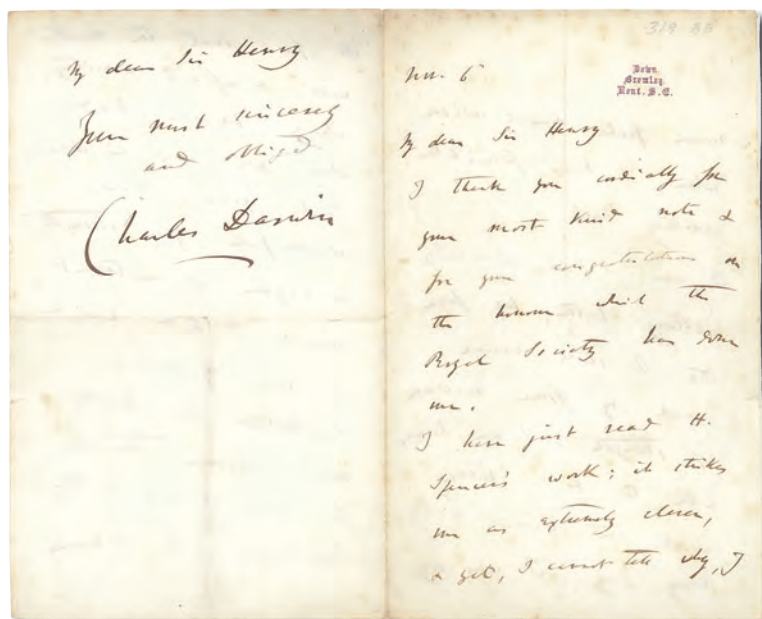 My dear Sir Henry
Your most sincerely
and obliged
Charles Darwin
Down.
Bromley.
Kent. S.E.
Nov. 6
My dear Sir Henry
I thank you cordially for
your most kind note &
for your congratulations on
the honour which the
Royal Society has done
me.
I have just read H.
Spencer's work; it strikes
me as extremely clever,
& yet, I cannot tell why, I